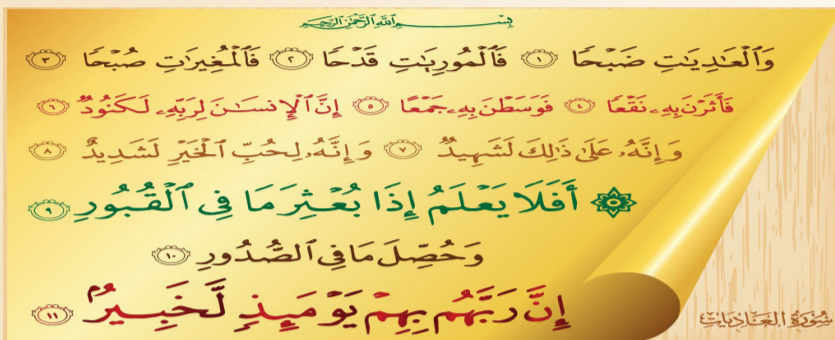 بِسْمِ اللَّهِ الرَّحْمَٰنِ الرَّحِيمِ
وَٱلْعَٰدِيَٰتِ ضَبْحًا ١ فَٱلْمُورِيَٰتِ قَدْحًا ٢ فَٱلْمُغِيرَٰتِ صُبْحًا ٣
فَأَثَرْنَ بِهِۦ نَقْعًا ٤ فَوَسَطْنَ بِهِۦ جَمْعًا ٥ إِنَّ ٱلْإِنسَٰنَ لِرَبِّهِۦ لَكَنُودٌ ٦
وَإِنَّهُۥ عَلَىٰ ذَٰلِكَ لَشَهِيدٌ ٧ وَإِنَّهُۥ لِحُبِّ ٱلْخَيْرِ لَشَدِيدٌ ٨
۞ أَفَلَا يَعْلَمُ إِذَا بُعْثِرَ مَا فِى ٱلْقُبُورِ ٩
وَحُصِّلَ مَا فِى ٱلصُّدُورِ ١٠
إِنَّ رَبَّهُم بِهِمْ يَوْمَئِذٍ لَّخَبِيرٌۢ ١١
سُورَةُ العَادِيَاتِ